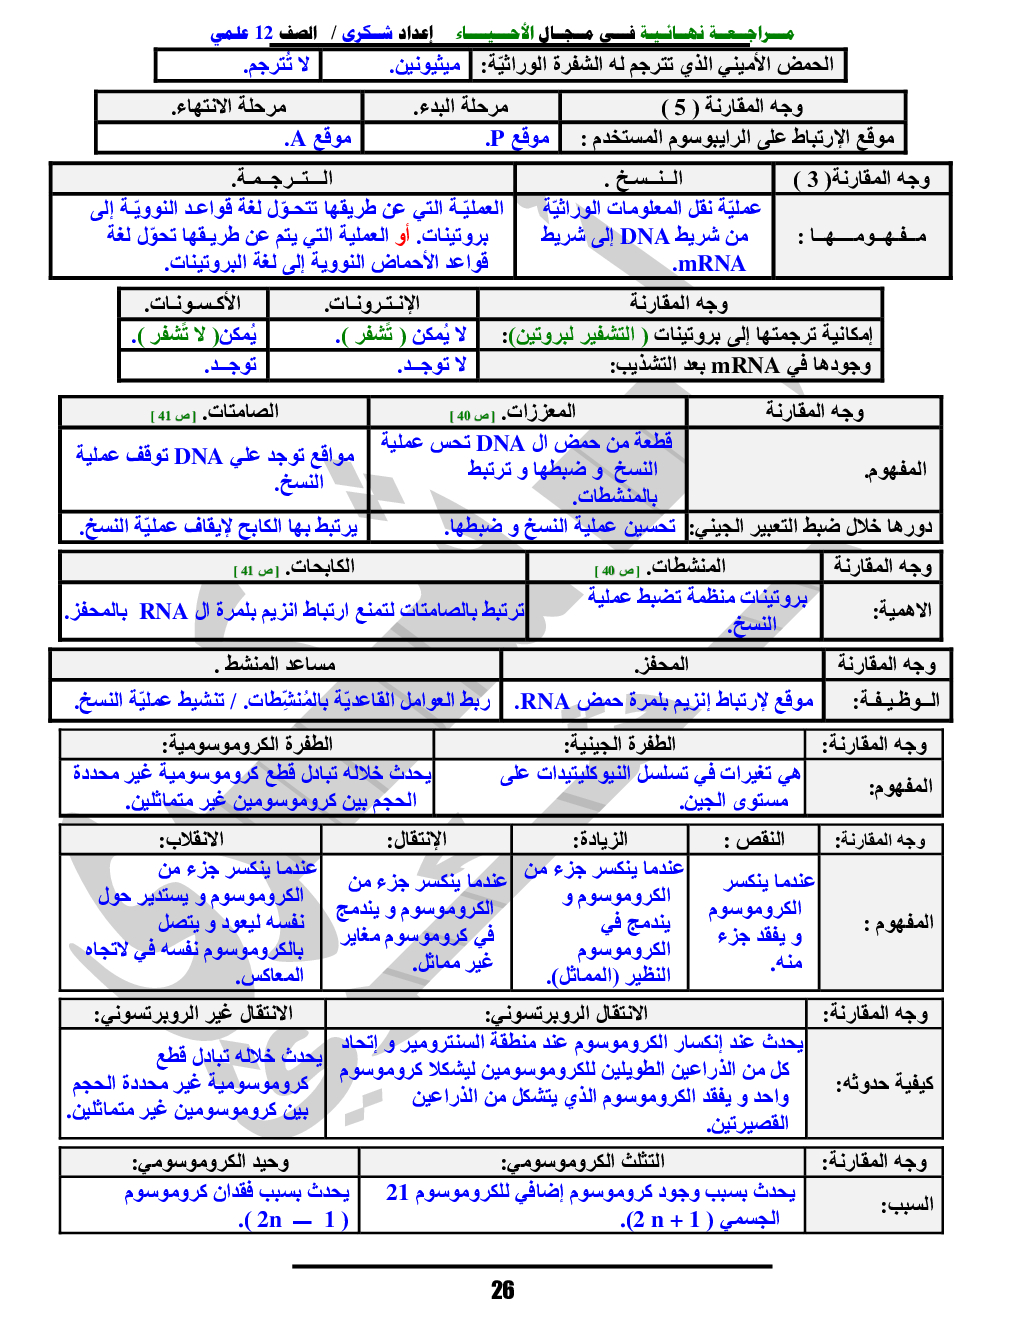 مـــراجــعــة نهــائـيـة فـــي مــجــال الأحــيــــاء إعداد شــكرى / الصف 12 علمي
الحمض الأميني الذي تترجم له الشفرة الوراثيّة: ميثيونين. لا تُترجم.
وجه المقارنة ( 5 ) مرحلة البدء. مرحلة الانتهاء.
موقع الإرتباط على الرايبوسوم المستخدم : موقع P. موقع A.
وجه المقارنة( 3 ) الــنــسـخ . الـــتــرجــمـة.
مــفــهــومــــهــا :
عمليّة نقل المعلومات الوراثيّة
من شريط DNA إلى شريط
mRNA.
العمليّـة التي عن طريقها تتحـوّل لغة قواعـد النوويّـة إلى
بروتينات. أو العملية التي يتم عن طريـقها تحوّل لغة
قواعد الأحماض النووية إلى لغة البروتينات.
وجه المقارنة الإنـتـرونـات. الأكـسـونـات.
إمكانية ترجمتها إلى بروتينات ( التشفير لبروتين): لا يُمكن ( تُشفر ). يُمكن( لا تُشفر ).
وجودها في mRNA بعد التشذيب: لا توجــد. توجــد.
وجه المقارنة المعززات. [ ص 40 ] الصامتات. [ ص 41 ]
المفهوم.
قطعة من حمض ال DNA تحس عملية
النسخ و ضبطها و ترتبط
بالمنشطات.
مواقع توجد علي DNA توقف عملية
النسخ.
دورها خلال ضبط التعبير الجيني: تحسين عملية النسخ و ضبطها. يرتبط بها الكابح لإيقاف عمليّة النسخ.
وجه المقارنة المنشطات. [ ص 40 ] الكابحات. [ ص 41 ]
الاهمية:
بروتينات منظمة تضبط عملية
النسخ.
ترتبط بالصامتات لتمنع ارتباط انزيم بلمرة ال RNA بالمحفز.
وجه المقارنة المحفز. مساعد المنشط .
الــوظـيـفـة: موقع لإرتباط إنزيم بلمرة حمض RNA. ربط العوامل القاعديّة بالمُنشِّطات. / تنشيط عمليّة النسخ.
وجه المقارنة: الطفرة الجينية: الطفرة الكروموسومية:
المفهوم:
هي تغيرات في تسلسل النيوكليتيدات على
مستوى الجين.
يحدث خلاله تبادل قطع كروموسومية غير محددة
الحجم بين كروموسومين غير متماثلين.
وجه المقارنة: النقص : الزيادة: الإنتقال: الانقلاب:
المفهوم :
عندما ينكسر
الكروموسوم
و يفقد جزء
منه.
عندما ينكسر جزء من
الكروموسوم و
يندمج في
الكروموسوم
النظير (المماثل).
عندما ينكسر جزء من
الكروموسوم و يندمج
في كروموسوم مغاير
غير مماثل.
عندما ينكسر جزء من
الكروموسوم و يستدير حول
نفسه ليعود و يتصل
بالكروموسوم نفسه في لاتجاه
المعاكس.
وجه المقارنة: الانتقال الروبرتسوني: الانتقال غير الروبرتسوني:
كيفية حدوثه:
يحدث عند إنكسار الكروموسوم عند منطقة السنترومير و إتحاد
كل من الذراعين الطويلين للكروموسومين ليشكلا كروموسوم
واحد و يفقد الكروموسوم الذي يتشكل من الذراعين
القصيرتين.
يحدث خلاله تبادل قطع
كروموسومية غير محددة الحجم
بين كروموسومين غير متماثلين.
وجه المقارنة: التثلث الكروموسومي: وحيد الكروموسومي:
السبب:
يحدث بسبب وجود كروموسوم إضافي للكروموسوم 21
الجسمي ( 2 n + 1).
يحدث بسبب فقدان كروموسوم
( 2n — 1 ).
26